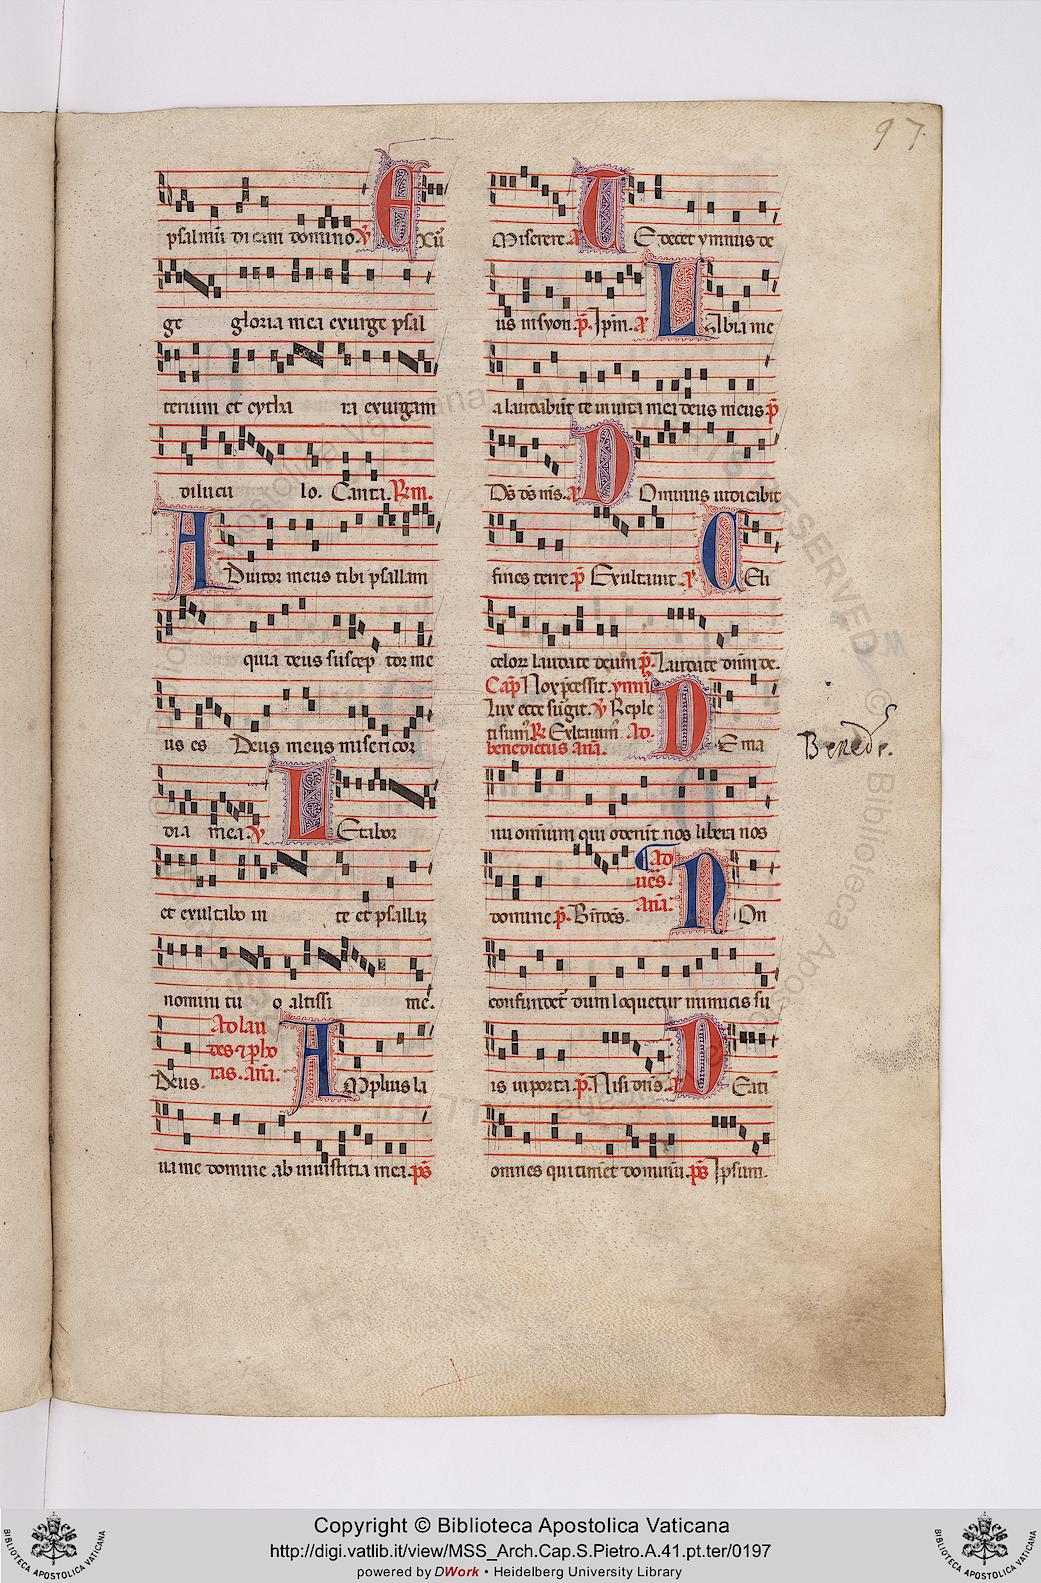 97
psalmū dicam domino. ℣ Exur
ge gloria mea exurge psal
terium et cytha ra exurgam
diluculo. Canta. ℟m.
Adiutor meus tibi psallam
quia deus suscep tor me
us es Deus meus misericor
dia mea. ℣ Letabor
et exultabo in te et psallā
nomini tu o altissi me.
Deus. Ad lau
des ⁊ p̄ ho
ras. an̄a. Amplius la
ua me domine ab iniustitia mea. ps̄
Miserere. an̄ Te decet ymnus de
us in syon. p̄. Ip̄m. an̄ Labia me
a laudabūt te in uita mea deus meus. p̄
Ds̄ ds̄ ms̄. an̄ Dominus iudicabit
fines terre. p̄ Exultauit. an̄ Celi
celoꝝ laudate deum. p̄. Laudate dn̄m de.
Cap̄ Nox p̄cessit. ymn̄
Lux ecce surgit. ℣ Reple
ti sum̄. ℟ Ad.
benedictus an̄a. De ma
nu omnium qui oderūt nos libera nos
domine. p̄. Bn̄dc̄s. Ad
ues̄.
an̄a. Non
confundet̄ dum loquetur inimicis su
is in porta. p̄. Nisi dn̄s. an̄ Beati
omnes qui timēt dominū. ps̄ Ipsum.
Beneds.
Copyright © Biblioteca Apostolica Vaticana
http://digi.vatlib.it/view/MSS_Arch.Cap.S.Pietro.A.41.pt.ter/0197
powered by DWork • Heidelberg University Library
BIBLIOTECA APOSTOLICA VATICANA
BIBLIOTECA APOSTOLICA VATICANA